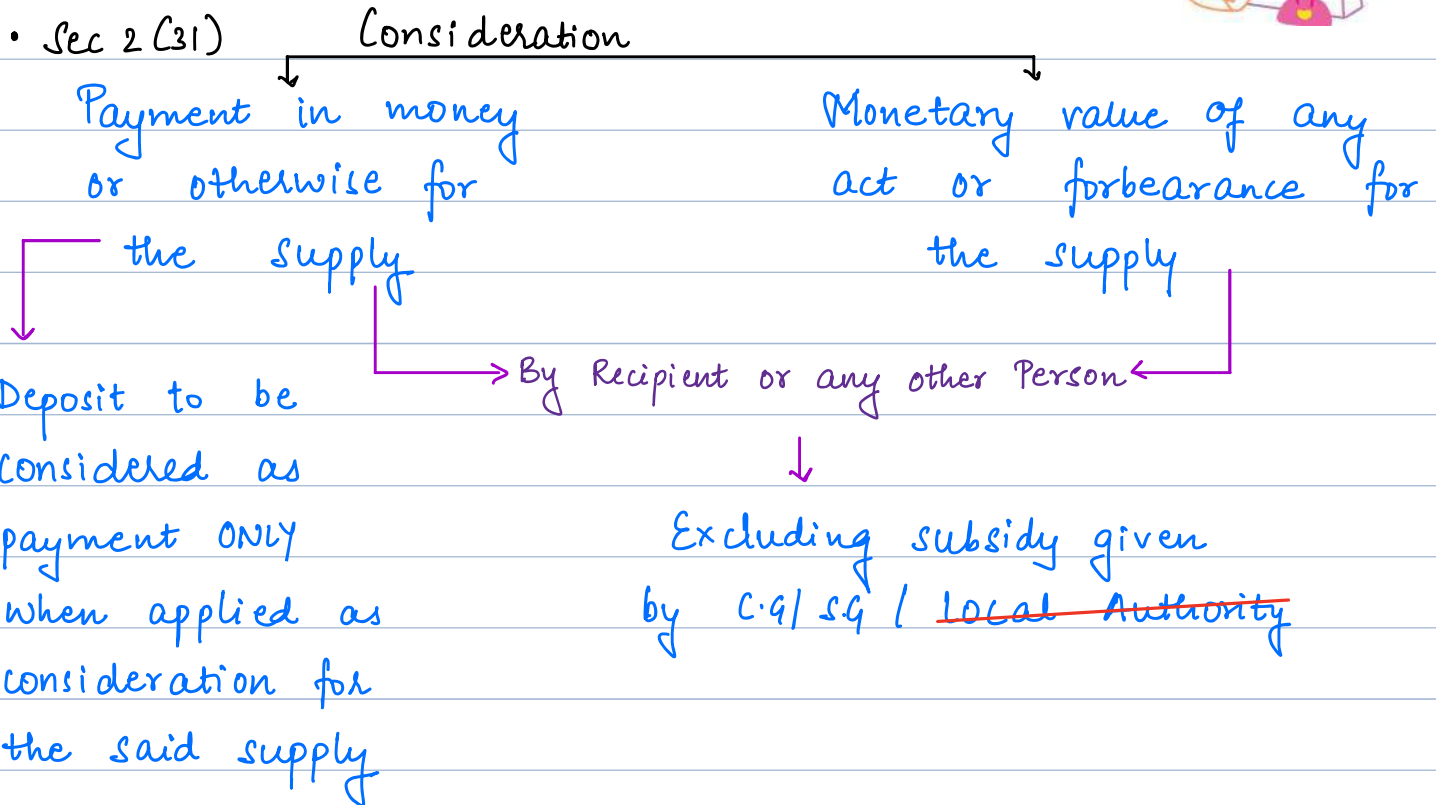 • Sec 2 (31) Consideration
Payment in money
or otherwise for
the supply
Monetary value of any
act or forbearance for
the supply
By Recipient or any other Person
Deposit to be
considered as
payment ONLY
when applied as
consideration for
the said supply
Excluding subsidy given
by C.G/ S.G / Local Authority